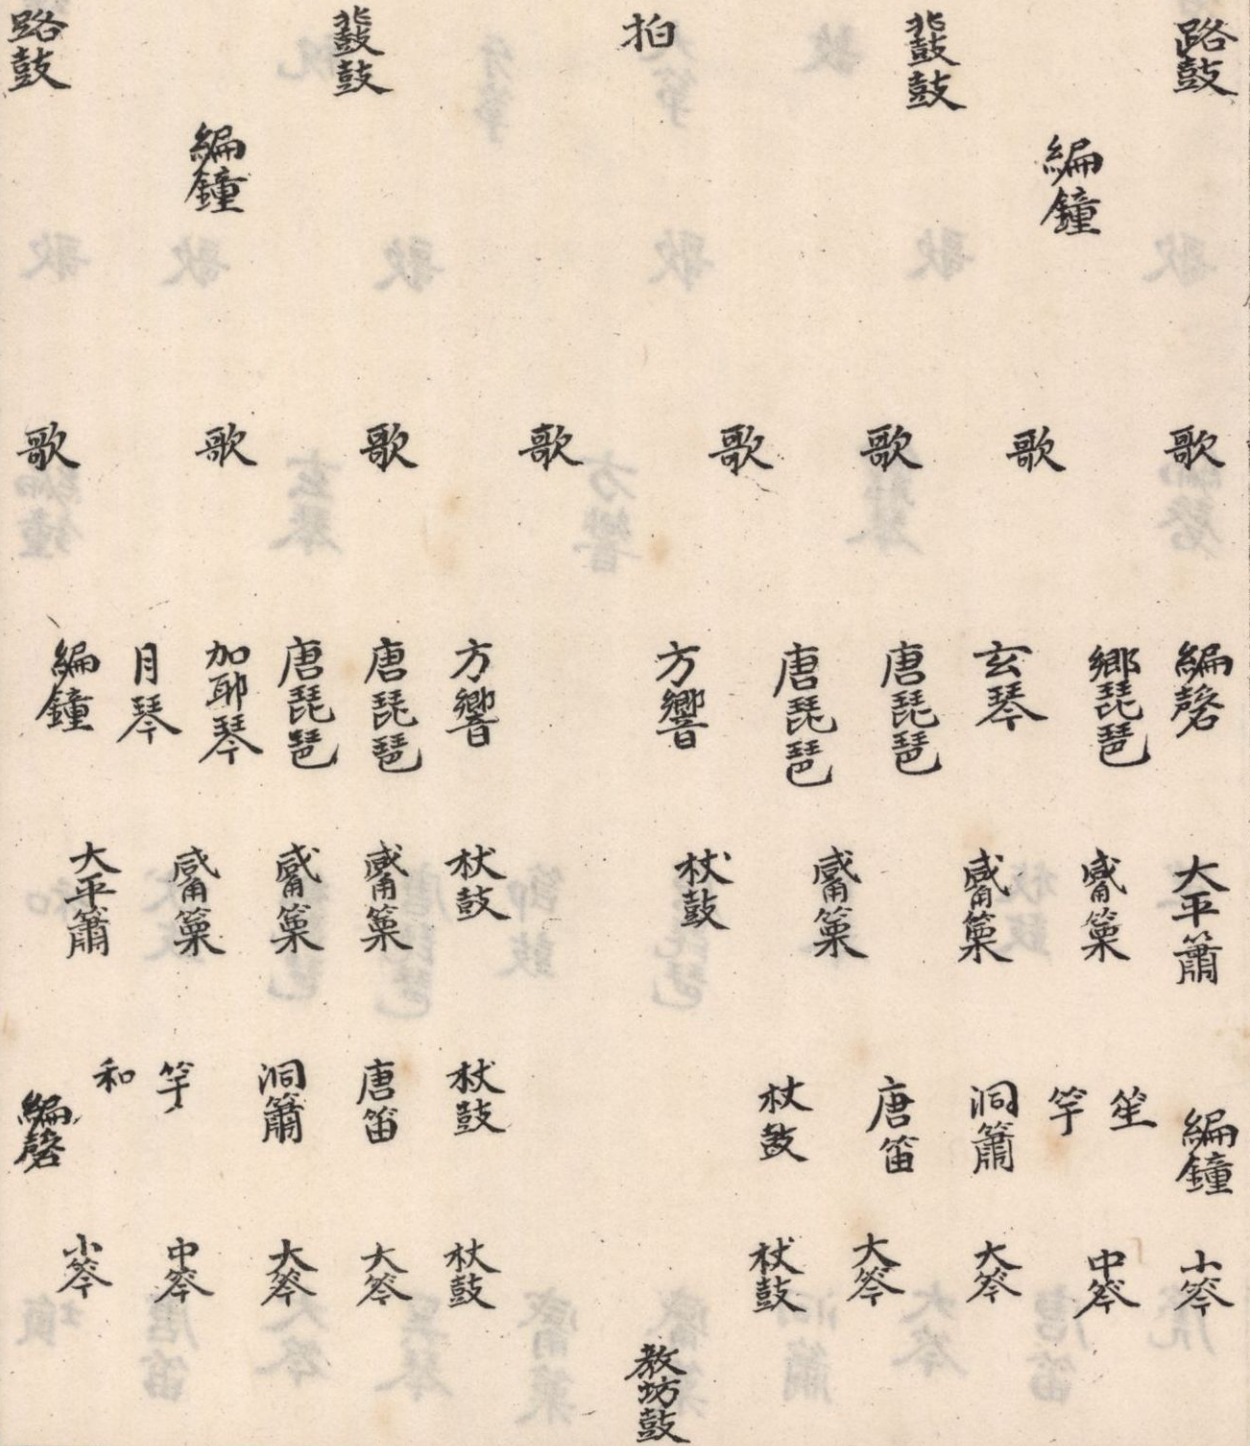 路鼓
鼗鼓
拍
鼗鼓
路鼓
編鐘
編鐘
歌
歌
歌
歌
歌
歌
歌
歌
編磬
鄕琵琶
玄琴
唐琵琶
唐琵琶
方響
方響
唐琵琶
唐琵琶
加耶琴
月琴
編鐘
大平簫
觱篥
觱篥
觱篥
杖鼓
杖鼓
觱篥
觱篥
觱篥
大平簫
編鐘
笙
竽
洞簫
唐笛
杖鼓
杖鼓
唐笛
洞簫
竽
和
編磬
小笒
中笒
大笒
大笒
杖鼓
杖鼓
大笒
大笒
中笒
小笒
教坊鼓